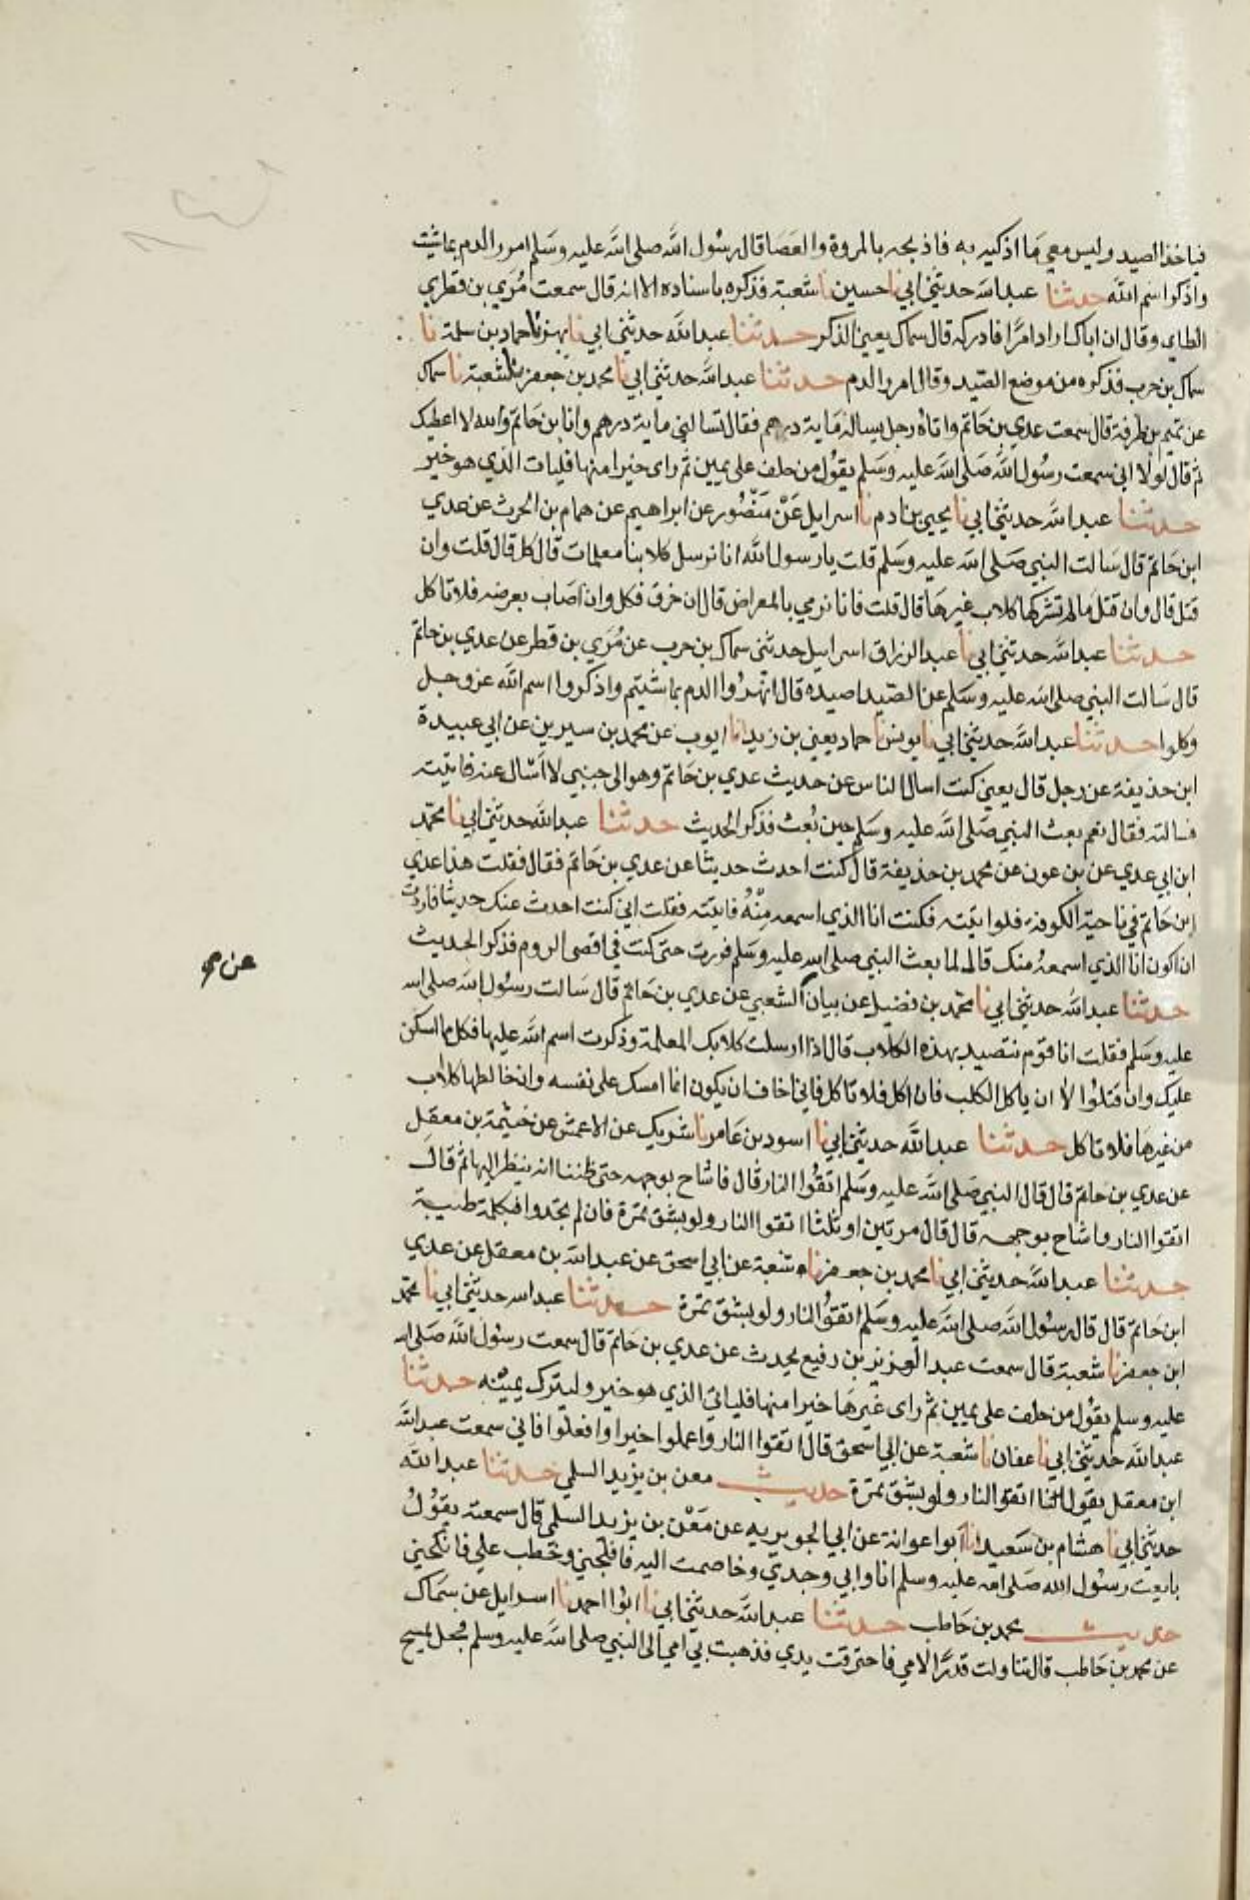 فياخذ الصيد وليس معي ما اذكيه به فاذبحه بالمروة والعصا قال رسول الله صلى الله عليه وسلم امرر الدم بما شئت
واذكر اسم الله حدثنا عبدالله حدثني ابي نا حسين نا شعبة فذكره باسناده الا انه قال سمعت مُرَي بن قطري
الطاي وقال ان اباك اراد امرًا فادركه قال سماك يعني الذكر حدثنا عبدالله حدثني ابي نا بهز نا حماد بن سلمة نا
سماك بن حرب فذكره من موضع الصيد وقال امرر الدم حدثنا عبدالله حدثني ابي نا محمد بن جعفر نا شعبة نا سماك
عن تميم بن طرفة قال سمعت عدي بن حاتم واتاه رجل يساله ماية درهم فقال تسالني ماية درهم وانا بن حاتم والله لا اعطيك
ثم قال لولا اني سمعت رسول الله صلى الله عليه وسلم يقول من حلف على يمين ثم راى خيرا منها فليات الذي هو خير
حدثنا عبدالله حدثني ابي نا يحيى بن ادم نا اسرايل عَنْ مَنْصُور عن ابراهيم عن همام بن الحرث عن عدي
ابن حاتم قال سالت النبي صلى الله عليه وسلم قلت يا رسول الله انا نرسل كلابنا معلمات قال كل قال قلت وان
قتل قال وان قتل مالم تشركها كلاب غيرها قال قلت فانا نرمي بالمعراض قال ان خرق فكل وان اصاب بعرضه فلا تاكل
حدثنا عبدالله حدثني ابي نا عبدالرزاق اسرايل حدثني سماك بن حرب عن مُرَي بن قطر عن عدي بن حاتم
قال سالت النبي صلى الله عليه وسلم عن الصيد اصيده قال انهروا الدم بما شيتم واذكروا اسم الله عز وجل
وكلوا حدثنا عبدالله حدثني ابي نا يونس نا حماد يعني بن زيد انا ايوب عن محمد بن سيرين عن ابي عبيدة
ابن حذيفة عن رجل قال يعني كنت اسال الناس عن حديث عدي بن حاتم وهو الى جنبي لا اسال عنه فاتيته
فسالته فقال نعم بعث النبي صلى الله عليه وسلم حين بُعث فذكر الحديث حدثنا عبدالله حدثني ابي نا محمد
ابن ابي عدي عن بن عون عن محمد بن حذيفة قال كنت احدث حديثا عن عدي بن حاتم فقال فقلت هذا عدي
ابن حاتم في ناحية الكوفة فلو اتيته فكنت انا الذي اسمعه مِنْهُ فاتيته فقلت اني كنت احدث عنك حديثا فاردت
ان اكون انا الذي اسمعهُ منك قال لما بعث النبي صلى الله عليه وسلم فررت حتى كنت في اقصى الروم فذكر الحديث
حدثنا عبدالله حدثني ابي نا محمد بن فضيل عن بيان الشعبي عن عدي بن حاتم قال سالت رسول الله صلى الله
عن م
عليه وسلم فقلت انا قوم نتصيد بهذه الكلاب قال اذا ارسلت كلابك المعلمة وذكرت اسم الله عليها فكل مما امسكن
عليك وان قتلوا الا ان ياكل الكلب فان اكل فلا تاكل فاني اخاف ان يكون انما امسك على نفسه وان خالطها كلاب
من غيرها فلا تاكل حدثنا عبدالله حدثني ابي نا اسود بن عامر نا شريك عن الاعمش عن خيثمة بن معقل
عن عدي بن حاتم قال قال النبي صلى الله عليه وسلم اتقُوا النار قال فاشاح بوجهه حتى ظننا انه ينظر اليها ثم قال
اتقوا النار واشاح بوجهه قال قال مرتين او ثلثا اتقوا النار ولو بشق تمرة فان لم تجدوا فبكلمة طيبة
حدثنا عبدالله حدثني ابي نا محمد بن جعفر نا شعبة عن ابي اسحق عن عبدالله بن معقل عن عدي
ابن حاتم قال قال رسول الله صلى الله عليه وسلم اتقوُ النار ولو بشق تمرة حدثنا عبدالله حدثني ابي نا محمد
ابن جعفر نا شعبة قال سمعت عبد العزيز بن رفيع يحدث عن عدي بن حاتم قال سمعت رسول الله صلى الله
عليه وسلم يقول من حلف على يمين ثم راى غيرها خيرا منها فليات الذي هو خير وليترك يمينه حدثنا
عبدالله حدثني ابي نا عفان نا شعبة عن ابي اسحق قال اتقوا النار واعملوا خيرا وافعلوا فاني سمعت عبدالله
ابن معقل يقول اتقوا النار ولو بشق تمرة حديث معن بن يزيد السلمي حدثنا عبدالله
حدثني ابي نا هشام بن سَعيد انا ابوا عوانة عن ابي الجويريه عن مَعْن بن يزيد السلمي قال سمعته يقولُ
بايعت رسول الله صلى الله عليه وسلم انا وابي وجدي وخاصمت اليه فافلجني وخطب علي فانكحني
حديث محمد بن حاطب حدثنا عبدالله حدثني ابي نا ابوا احمد نا اسرايل عن سماك
عن محمد بن حاطب قال تناولت قدرًا لامي فاحترقت يدي فذهبت بي امي الى النبي صلى الله عليه وسلم فجعل يمسح